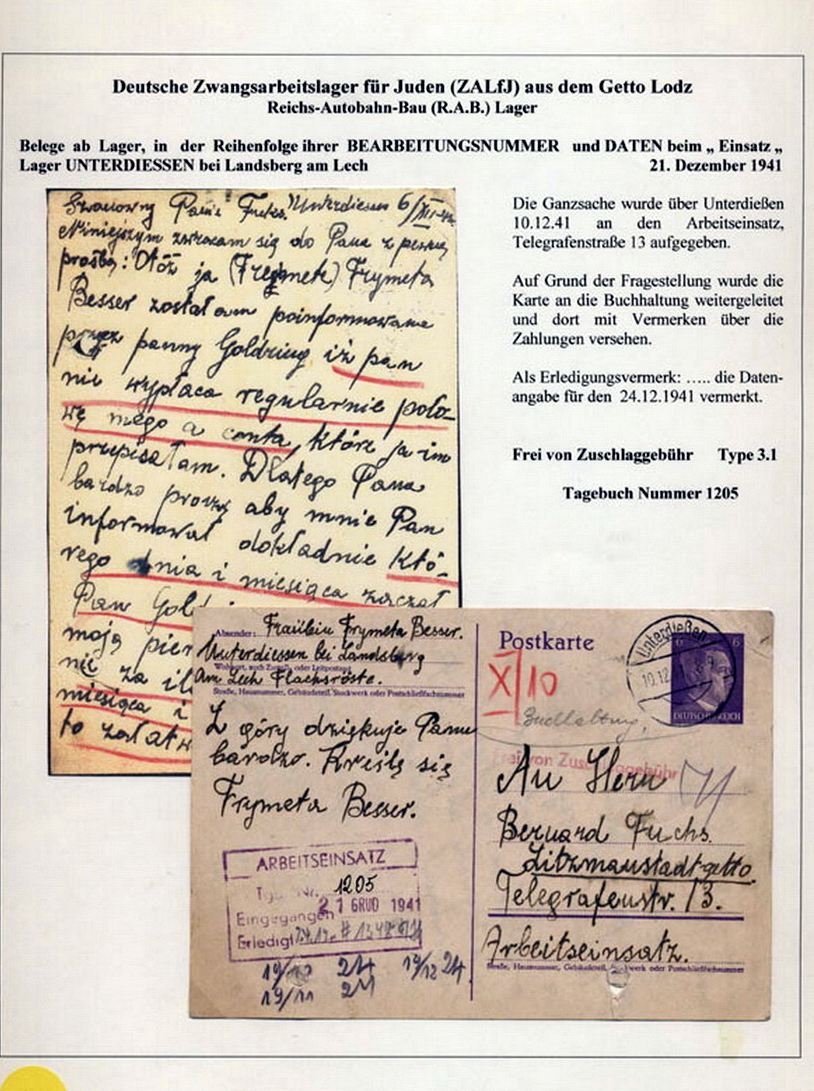 Deutsche Zwangsarbeitslager für Juden (ZALfJ) aus dem Getto Lodz
Reichs-Autobahn-Bau (R.A.B.) Lager
Belege ab Lager, in der Reihenfolge ihrer BEARBEITUNGSNUMMER und DATEN beim „ Einsatz „
Lager UNTERDIESSEN bei Landsberg am Lech 21. Dezember 1941
Szanowny Panie Fuchs. Unterdiessen 6/XII-
Niniejszym zwracam się do Pana z pewną
prośbą: Otóż ja Frymeta
Besser zostałam poinformowana
przez panny Goldring iż pan
nie wypłaca regularnie poło-
wę mego a conta, które ja im
przepisałam. Dlatego Pana
bardzo proszę aby mnie Pan
informował dokładnie któ-
rego dnia i miesiąca zaczął
Pan
moją
nić za
miesiąca i
to
Die Ganzsache wurde über Unterdießen
10.12.41 an den Arbeitseinsatz,
Telegrafenstraße 13 aufgegeben.
Auf Grund der Fragestellung wurde die
Karte an die Buchhaltung weitergeleitet
und dort mit Vermerken über die
Zahlungen versehen.
Als Erledigungsvermerk: ….. die Daten-
angabe für den 24.12.1941 vermerkt.
Frei von Zuschlaggebühr Type 3.1
Tagebuch Nummer 1205
Absender: Fräulein Frymeta Besser.
Unterdiessen bei Landsberg
Wohnort, auch Zustell- oder Leitpostamt
Am Lech Flachsröste.
Straße, Hausnummer, Gebäudeteil, Stockwerk oder Postschließfachnummer
Z góry dziękuje Panu
bardzo. Kreślę się
Frymeta Besser.
ARBEITSEINSATZ
Tgb. Nr. 1205
Eingegangen 21 GRUD 1941
Erledigt
19/12 24 19/12 24
19/11 24
Postkarte
Unterdießen
10.12
6 6
DEUTSCHES REICH
X/10
Buchhaltung
Frei von Zuschlaggebühr
An Herrn
Bernard Fuchs.
Litzmanstadt-getto
Telegrafenstr. 13.
Arbeitseinsatz.
Straße, Hausnummer, Gebäudeteil, Stockwerk oder Postschließfachnummer